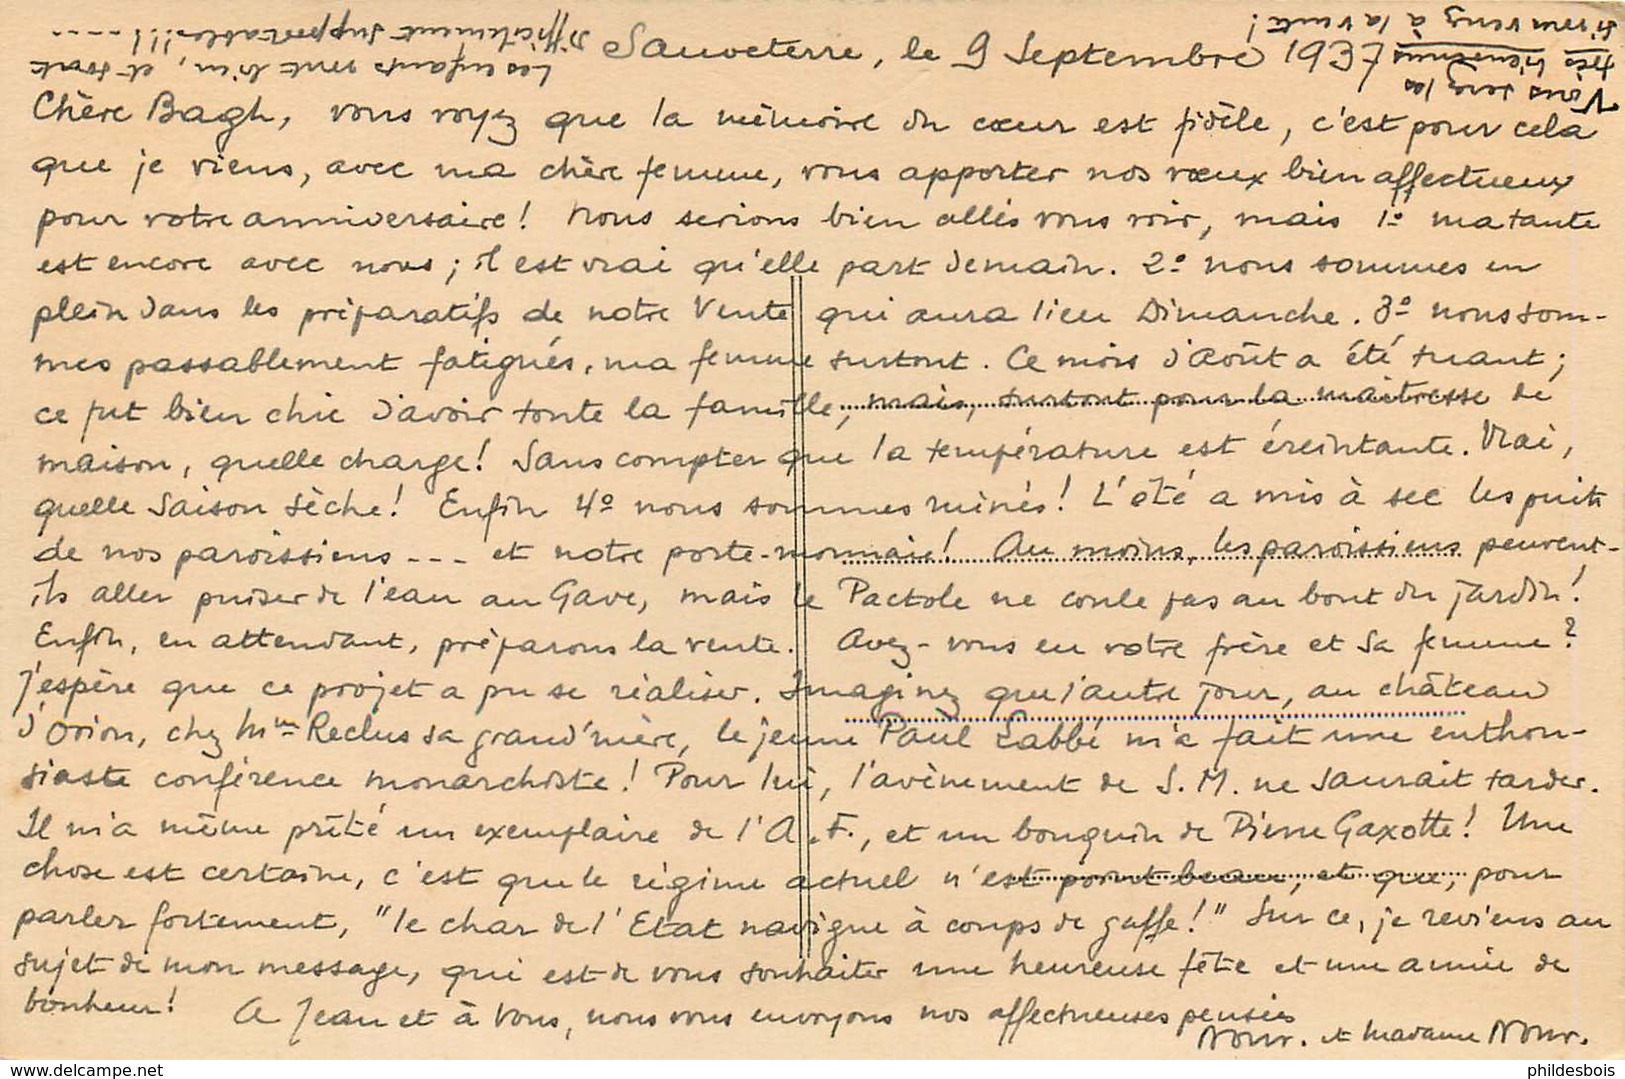 Sauveterre, le 9 Septembre 1937
Chère Bagh, vous voyez que la mémoire du cœur est fidèle, c'est pour cela
que je viens, avec ma chère femme, vous apporter nos vœux bien affectueux
pour votre anniversaire ! Nous serions bien allés vous voir, mais 1º ma tante
est encore avec nous ; il est vrai qu'elle part demain. 2º nous sommes en
plein dans les préparatifs de notre Vente qui aura lieu Dimanche. 3º nous som-
mes passablement fatigués, ma femme surtout. Ce mois d'Août a été tuant ;
ce fut bien chic d'avoir toute la famille, mais, surtout pour la maîtresse de
maison, quelle charge ! Sans compter que la température est éreintante. Vrai,
quelle saison sèche ! Enfin 4º nous sommes ruinés ! L'été a mis à sec les puits
de nos paroissiens --- et notre porte-monnaie ! Au moins, les paroissiens peuvent-
ils aller puiser de l'eau au Gave, mais le Pactole ne coule pas au bout du jardin !
Enfin, en attendant, préparons la vente. Avez-vous eu votre frère et sa femme ?
J'espère que ce projet a pu se réaliser. Imaginez que l'autre jour, au château
d'Orion, chez Mme Reclus sa grand'mère, le jeune Paul Labbé m'a fait une enthou-
siaste conférence monarchiste ! Pour lui, l'avènement de S. M. ne saurait tarder.
Il m'a même prêté un exemplaire de l'A.F., et un bouquin de Pierre Gaxotte ! Une
chose est certaine, c'est que le régime actuel n'est point beau, et que, pour
parler fortement, "le char de l'Etat navigue à coups de gaffe !" Sur ce, je reviens au
sujet de mon message, qui est de vous souhaiter une heureuse fête et une année de
bonheur ! A Jean et à Vous, nous vous envoyons nos affectueuses pensées
et Madame
Les enfants vont bien, et sont
difficilement supportables !!! ----
Vous serez les
très bienvenus
si vous venez à la vente !
phildesbois
My eBay Store.com